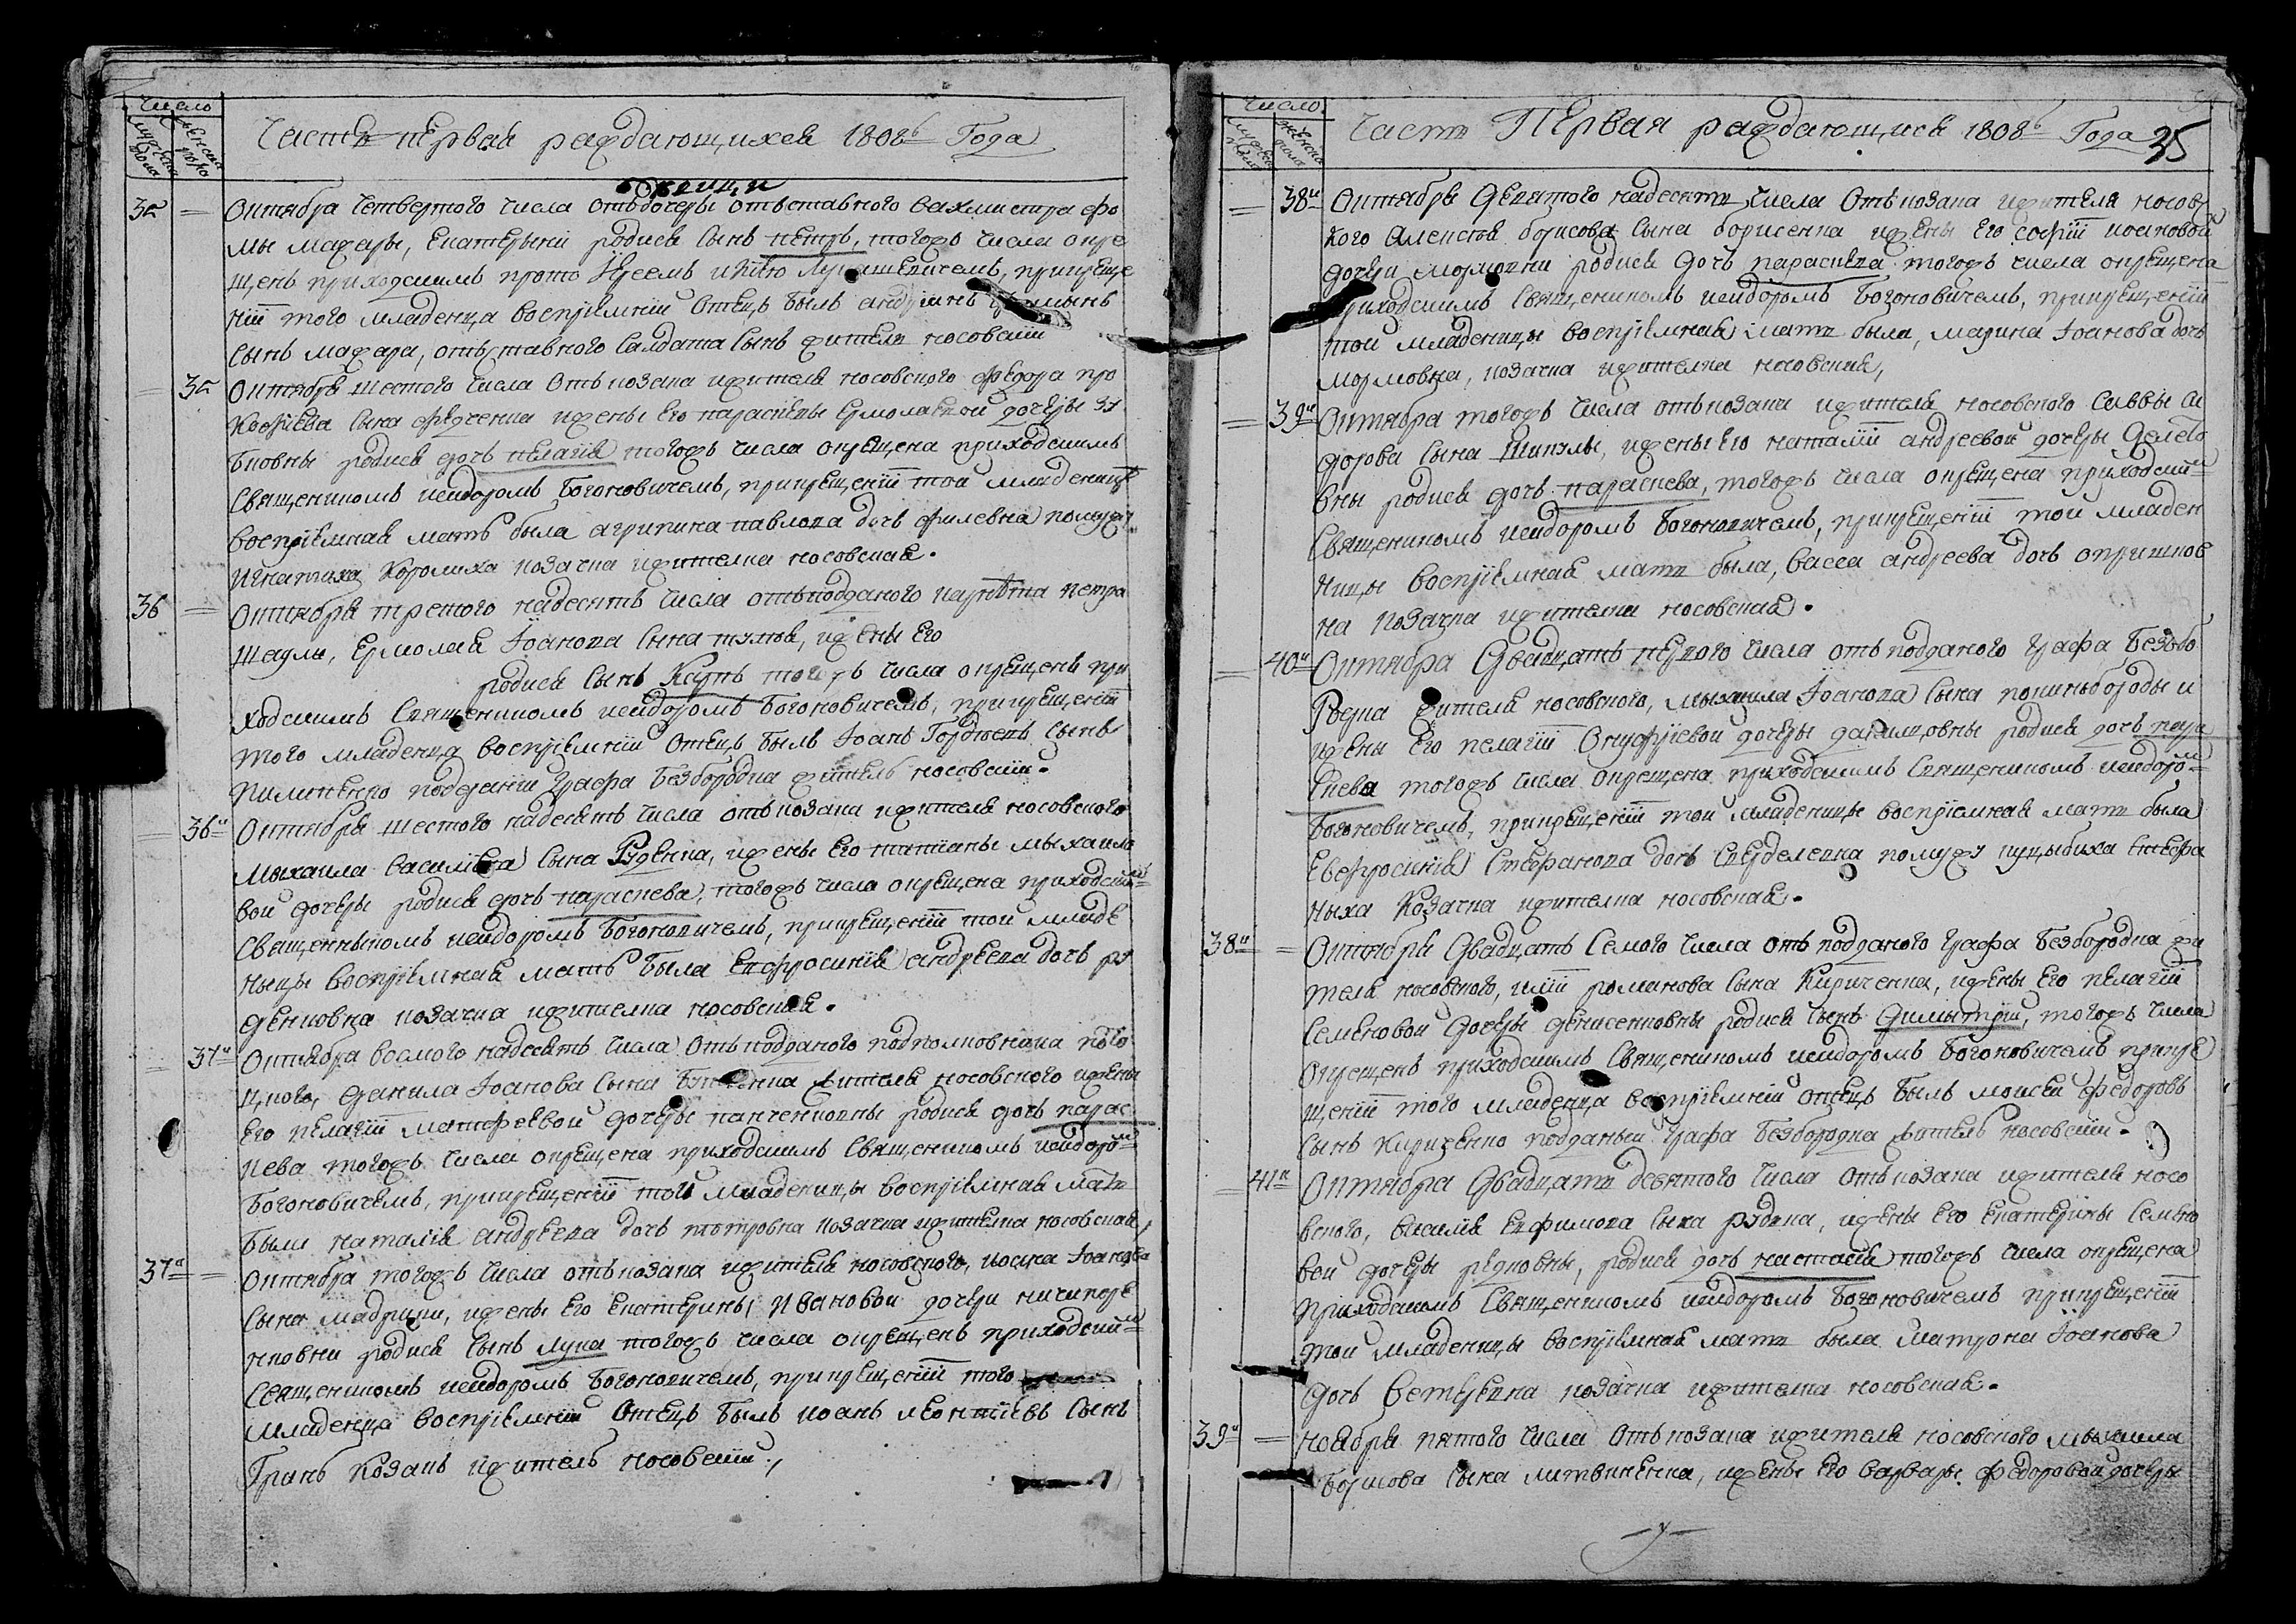 Число
мужеска пола
женска полу
Часть первая раждающихся 1808го Года
35 = Октября четвертого числа отъ дочеры отъставного вахмистра фо
мы махары, Екатерыни родися сынъ петръ, тогожъ числа окре
щенъ приходскимъ прото Іереемъ Лукашевичемъ, прикреще
ніи того младенца воспріемній отецъ былъ
сынъ махара, отъставного салдата сынъ житель носовскій
= 35 Октября шестого числа отъ козака ижителя носовского федора про
кофіева сына федченка ижены его параскевы ермолаевой дочеры зу
бковны родися дочъ пелагія тогожъ числа окрещена приходскимъ
священикомъ исидоромъ Богоновичемъ, прикрещеніи той младеници
воспріемная мать была агрипина павлова дочъ филевна помужу
игнатиха Королиха козачка ижителка носовская.
36 = Октября третого надесять числа отъ подданого петра
Ермолая Іоанова сына ижены его
родися сынъ тогожъ числа окрещенъ при
ходскимъ священикомъ исидоромъ Богоновичемъ, прикрещеніи
того младенца воспріемній отецъ былъ Іоанъ Гордѣевъ сынъ
Пилипенко подданій Графа Безбородка житель носовскій.
= 36и Октября шестого надесять числа отъ козака ижителя носовского
Михаила василіева сына Руденка, ижены его татіаны михаило
вой дочеры родися дочъ параскева, тогожъ числа окрещена приходским
священыкомъ исидоромъ Богоновичемъ, прикрещеніи той младе
ныцы воспріемная мать была Евфросинія андреева дочъ ру
денковна козачка ижителка носовская.
= 37и Октября восмого надесять числа отъ подданого подполковника
данила Іоанова сына жителя носовского ижены
его пелагіи матфеевой дочеры панченковны родися дочъ парас
кева тогожъ числа окрещена приходскимъ священикомъ исидором
Богоновичемъ, прикрещеніи той младеницы воспріемная мать
была наталія андреева дочъ козачка ижителка носовская,
37и = Октября тогожъ числа отъ козака ижителя носовского, Іоанова
сына мадрики, ижены его екатерины, Ивановой дочери ничипоре
нковни родися сынъ лука тогожъ числа окрещенъ приходским
священикомъ исидоромъ Богоновичемъ, прикрещеніи того
младенца воспріемній отецъ былъ иоанъ леонтіевъ сынъ
Гринь Козакъ ижитель носовскій,
Число
мужеска пола
женска пола
Часть Первая раждающися 1808го Года 35
= 38и Октября Девятого надесять числа отъ козака ижителя носов
кого Алексѣя борисова сына борисенка ижены его софіи иоановой
дочери морховни родися дочъ параскева тогожъ числа окрещена
приходскимъ священикомъ исидоромъ Богоновичемъ, прикрещеніи
той младеницы воспріемная мать была, марина Іоанова дочъ
морховна, козачка ижителка носовская,
= 39и Октября тогожъ числа отъ козака ижителя носовского саввы си
дорова сына Шикулы, ижены его наталіи андреевой дочеры
вны родися дочъ параскева, тогожъ числа окрещена приходским
священикомъ исидоромъ Богоновичемъ, прикрещеніи той младен
ницы воспріемная мать была, васса андреева дочъ опришков
на козачка ижителка носовская.
= 40и Октября Двадцать первого числа отъ подданого Графа Безбо
родка жителя носовского, михаила Іоанова сына покиньбороды и
жены его пелагіи Онуфріевой дочеры даниловны родися дочъ пара
скева тогожъ числа окрещена приходскимъ священикомъ исидором
Богоновичемъ, прикрещеніи той младеницы воспріемная мать была
Евфросинія Стефанова дочъ помужу куцыбиха стефа
ныха Козачка ижителка носовская.
38и = Октября Двадцать Семого числа отъ подданого Графа Безбородка жи
теля носовского, иліи романова сына Кириченка, ижены его пелагіи
семеновой дочеры денисенковны родися сынъ Димытрій, тогожъ числа
окрещенъ приходскимъ священикомъ исидоромъ Богоновичемъ прикре
щеніи того младенца воспріемній отецъ былъ моисей федоровъ
сынъ Кириченко подданый Графа Безбородка житель носовскій.
= 41и Октября Двадцать девятого числа отъ козака ижителя носо
вского, василія Евфимова сына рудка, ижены его екатерины Семено
вой дочеры редковны, родися дочъ настасія тогожъ числа окрещена
приходскимъ священикомъ исидоромъ Богоновичемъ прикрещеніи
той младеницы воспріемная мать была матрона Іоанова
дочъ козачка ижителка носовская.
39и = Ноября пятого числа отъ козака ижителя носовского михаила
борисова сына литвиненка, ижены его варвары федоровой дочеры